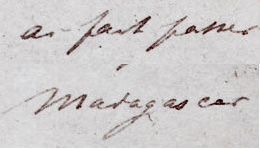 as fait passer
à
Madagascar